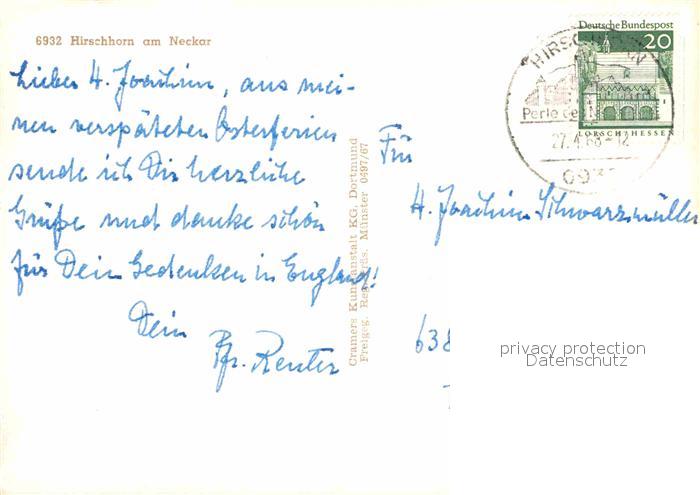 6932 Hirschhorn am Neckar
Lieber H. Joachim, aus mei-
nen verspäteten Osterferien
sende ich Dir herzliche
Grüße und danke schön
für Dein Gedenken in England!
Dein
Pfr. Reuter
Cramers Kunstanstalt KG. Dortmund
Freigeg. Reg. Präs. Münster 0497/67
Deutsche Bundespost
20
LORSCH/HESSEN
HIRSCHHORN
Perle des
27.4.68-12
693
Für
H. Joachim Schwarzmüller
638
privacy protection
Datenschutz